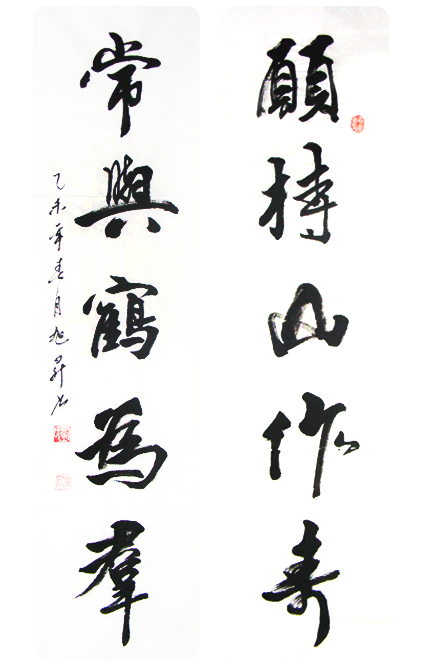 願持山作壽
常與鶴為羣
乙未年春月旭昇書